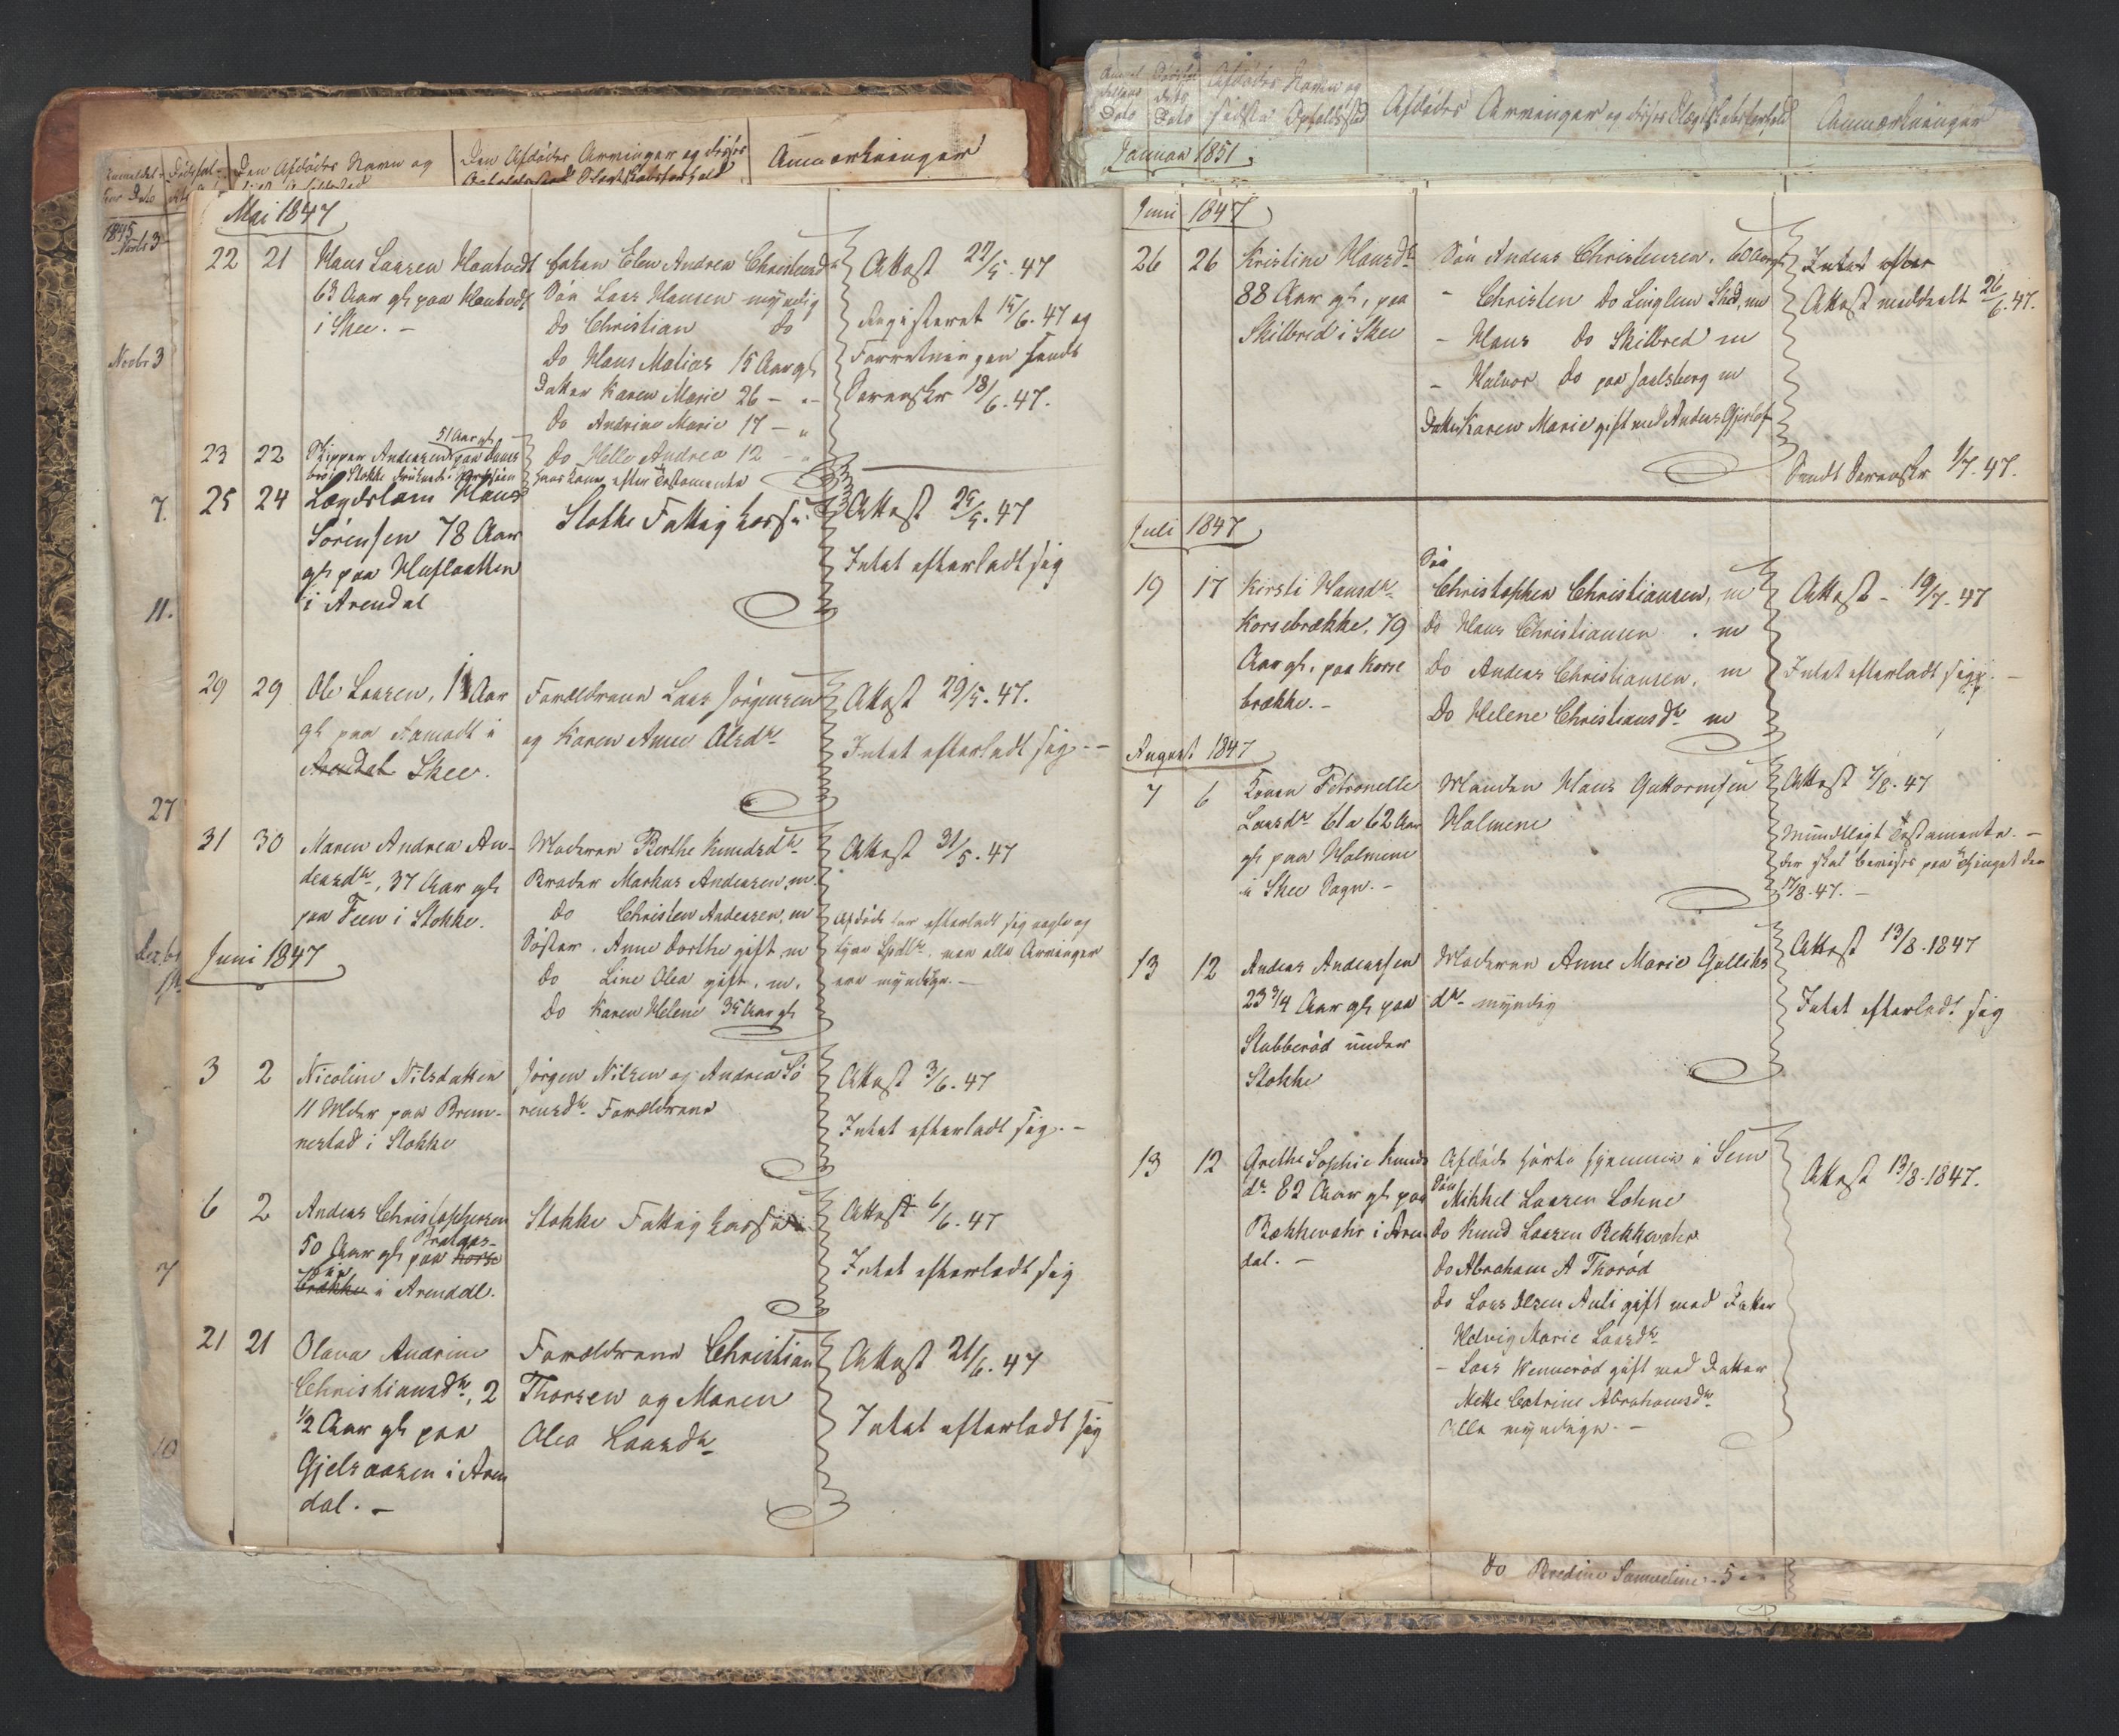 Anmeldel-
ser Dato
Dødsfal-
Den Afdødes Navn og
Den Afdødes Arvinger og disses
Opholdssted Slægtskabsforhold
Anmærkninger
1845
Novbr 3
Novbr 3
7.
11.
27
7
10
Mai 1847
22 21 Hans Larsen Hontvedt
63 Aar gl. paa Hontvedt
i Skee. -
Enken Elen Andrea Christensdr
Søn Lars Hansen myndig
Do Christian Do
Do Hans Matias 15 Aar gl
Datter Karen Marie 26 - " -
Do Andrine Marie 17 - "
Do Helle Andrea 12 - "
Attest 22/5. 47
Registeret 15/6. 47 og
Forretningen sendt
Sorenskr 18/6. 47.
23 22 Skipper Andersen
51 Aar gl
Stokke
hans Kone efter Testamente
25 24 Lægdslem Hans
Sørensen 78 Aar
gl. paa Huflaatten
i Arendal
Stokke Fattigkasse
Attest 25/5. 47
Intet efterladt sig
29 29 Ole Larsen, 1 Aar
gl paa Aamodt i
Arendal Skee.
Forældrene Lars Jørgensen
og Karen Anne Olsdr
Attest 29/5. 47.
Intet efterladt sig. -
31 30 Maren Andrea An-
dersdr, 37 Aar gl
paa Feen i Stokke.
Moderen Berthe Knudsdr
Broder Markus Andersen, m.
Do Christen Andersen, m
Søster. Anne Dorthe gift m
Do Line Olea gift. m.
Do Karen Helene 35 Aar gl
Attest 31/5. 47
Afdøde har efterladt sig nogle og
tyve Spdlr, men alle Arvinger
ere myndige. -
Juni 1847
3 2 Nicoline Nilsdatter
11 Uger paa Brun-
nestad i Stokke
Jørgen Nilsen og Andrea Sø
rensdr Forældrene
Attest 3/6. 47
Intet efterladt sig. -
6 2 Anders Christophersen
50 Aar gl paa Korse
brække i Arendal.
Stokke Fattigkasse
Attest 6/6. 47
Intet efterladt sig
21 21 Olava Andrine
Christiansdr, 2
1/2 Aar gl paa
Gjelsaasen i Aren
dal. -
Forældrene Christian
Thorsen og Maren
Olea Larsdr
Attest 21/6. 47
Intet efterladt sig
Dødsfal
dets
Dato
Dato
Afdødes Navn og
sidste Opholdssted
Afdødes Arvinger og disses Slægtskabsforhold
Anmærkninger
Januar 1851
Juni 1847
26 26 Kristine Hansdr
88 Aar gl, paa
Skilbred i Skee
Søn Anders Christensen. 60 Aar gl
- Christen Do Linglem Skee, m
- Hans Do Skilbred m
- Halvor Do paa Jarlsberg m
Datter Karen Marie gift med Anders Gjerløf
Intet efter
Attest meddeelt 26/6. 47.
Sendt Sorenskr 1/7. 47.
Juli 1847
19 17 Kirsti Hansdr
Korsebrække, 79
Aar gl. paa Korse
brække. -
Søn
Christopher Christiansen, m
Do Hans Christiansen . m
Do Anders Christiansen, m
Do Helene Christiansdr m
Attest - 19/7. 47
Intet efterladt sig. -
August 1847
7 6 Konen Petronelle
Larsdr 61 a 62 Aar
gl paa Holmene
i Skee Sogn. -
Manden Hans Guttormsen
Holmene
Attest 7/8. 47
Mundtligt Testamente. -
der skal bevises paa Thinget den
17/8. 47. -
13 12 Anders Andersen
23 3/4 Aar gl paa
Stubberød under
Stokke
Moderen Anne Marie Gulliks
dr myndig
Attest 13/8. 1847
Intet efterladt sig
13 12 Grethe Sophie Knuds
dr 82 Aar gl paa
Bækkevahr i Aren
dal. -
Afdøde hørte hjemme i Sem
Søn
Mikkel Larsen Lohne
Do Knud Larsen Bekkevahr
Do Abraham A Thorød
Do Lars Olsen Auli gift med Datter
Helvig Marie Larsdr
- Lars Wennerød gift med Datter
Mette Catrine Abrahamsdr
Alle myndige. -
Attest 13/8. 1847.
Do Bredine Samueline . 5 -